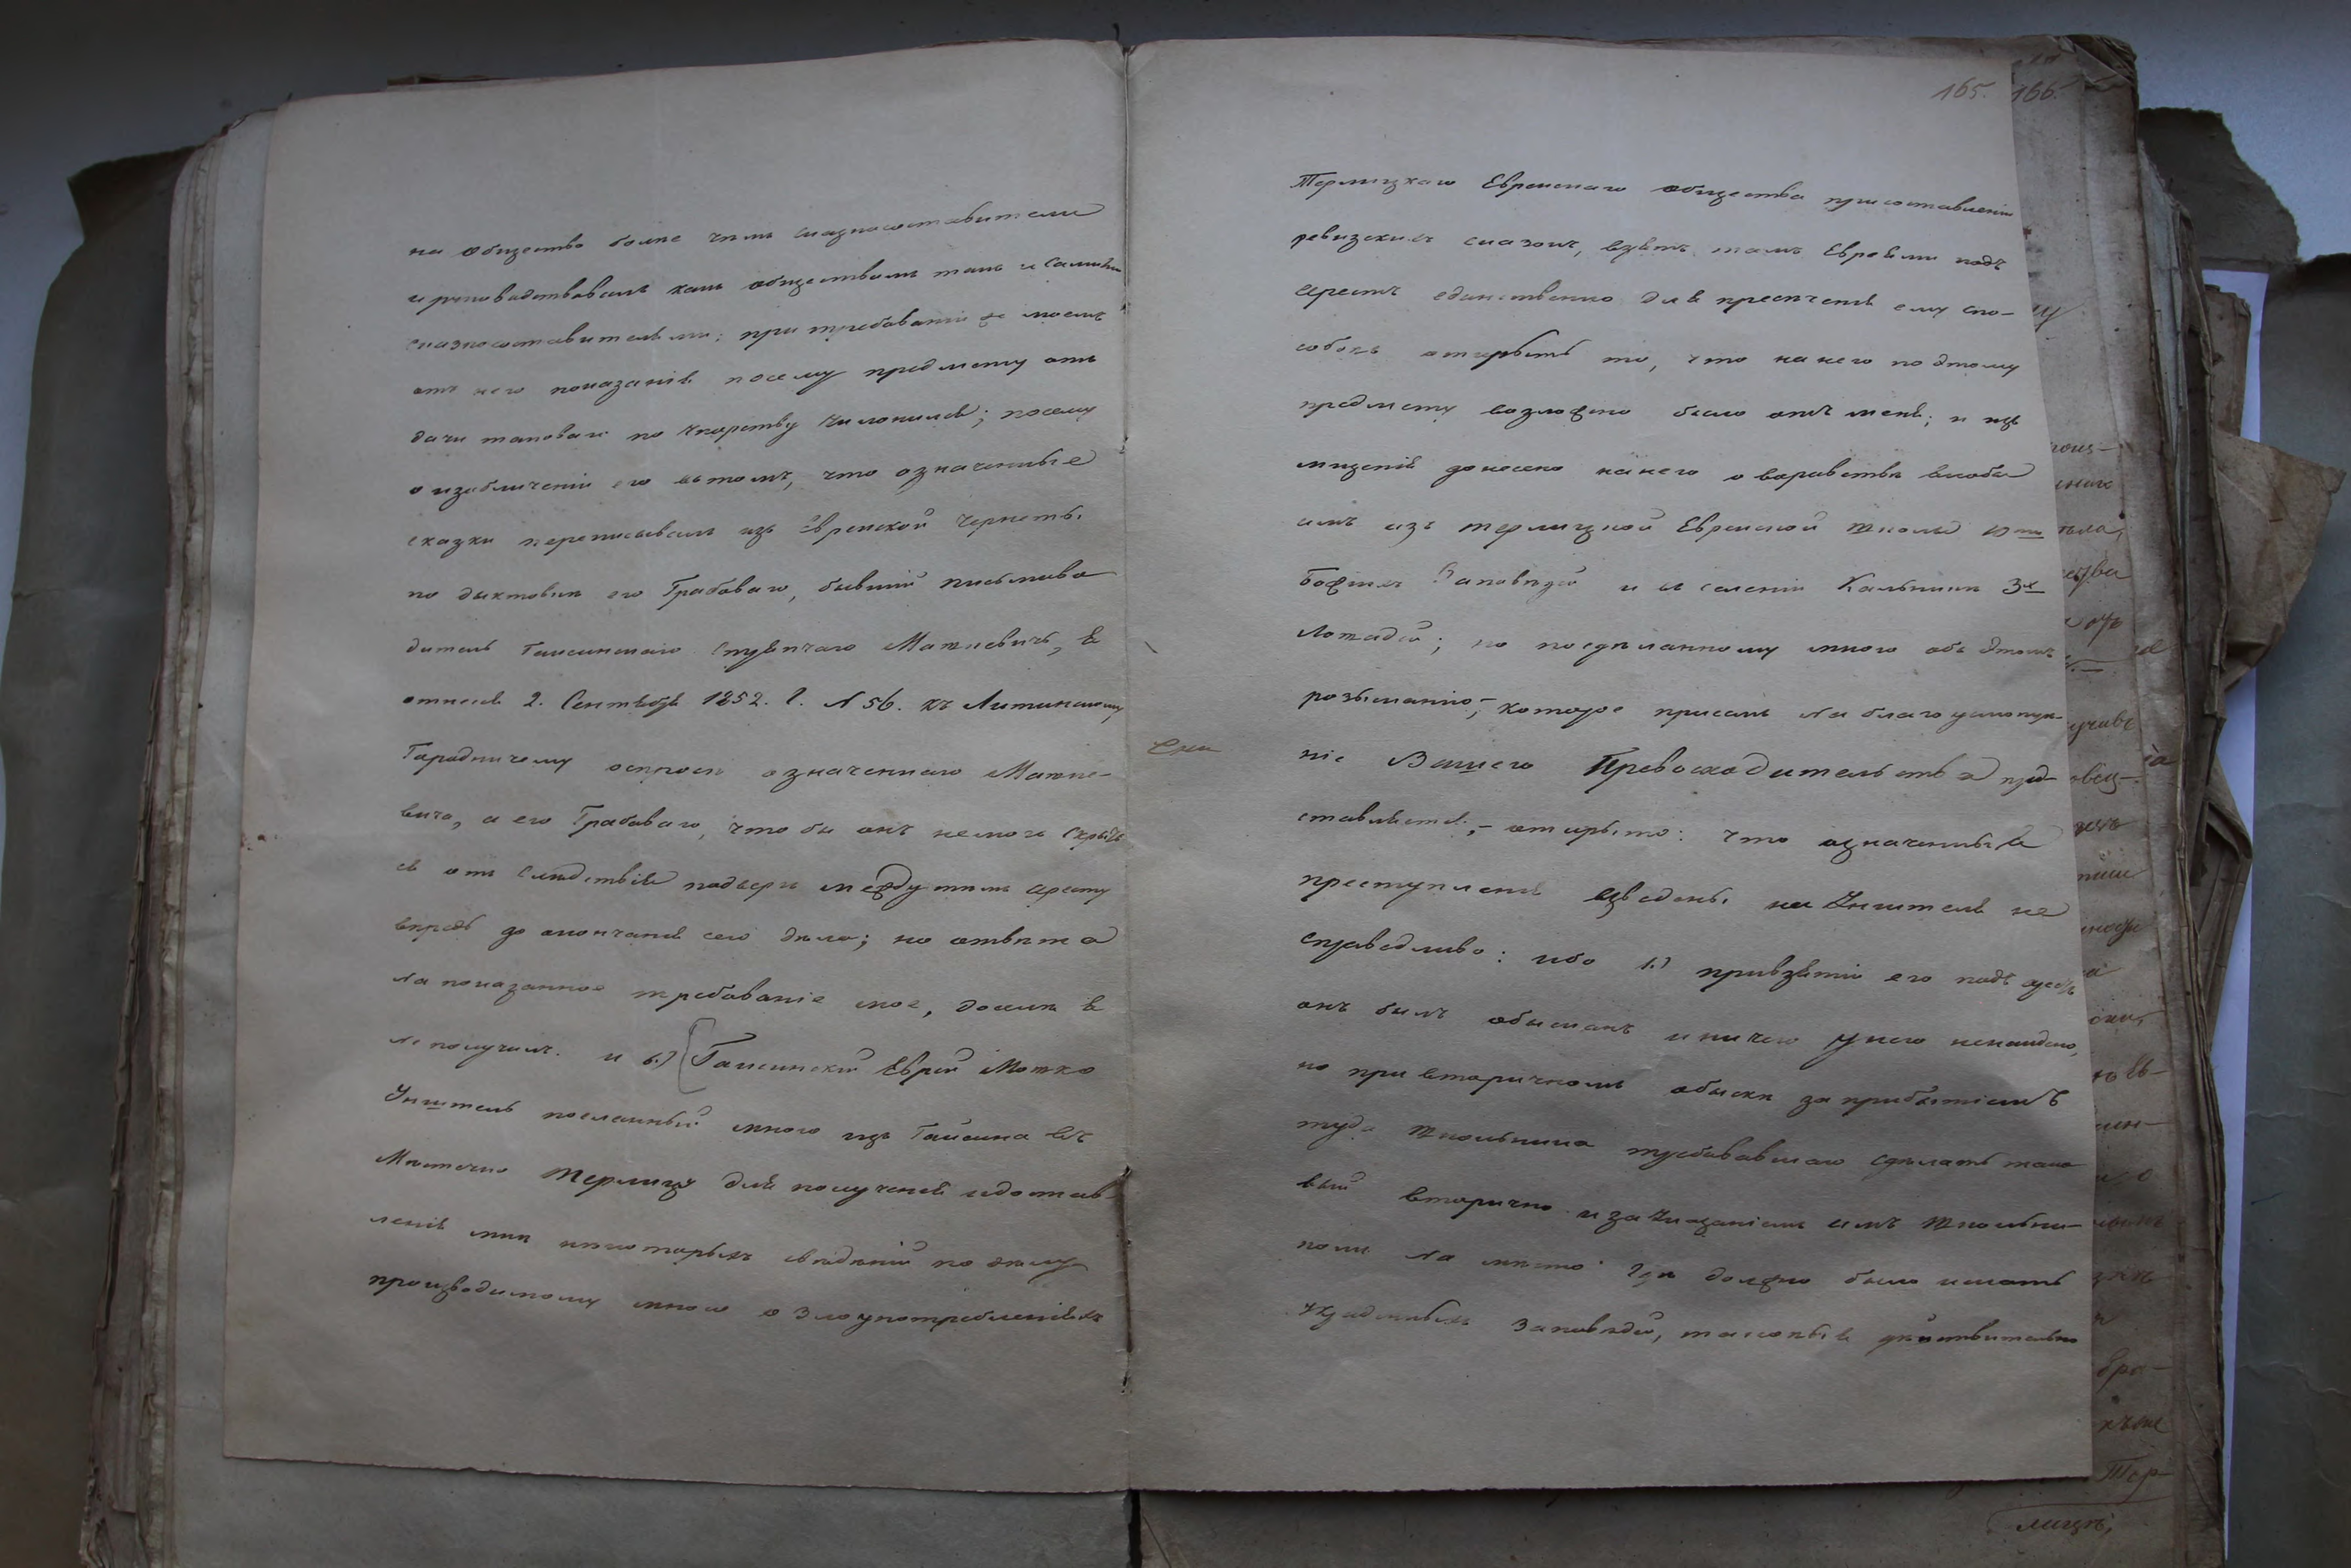 на общество болѣе чѣмъ сказкосоставители
и руководствовалъ какъ обществомъ такъ и самыми
сказкосоставителями; при требованіи же моемъ
отъ него показанія по сему предмету отъ
дачи таковаго по упорству уклонился; посему
о изобличеніи его въ томъ, что означенные
сказки переписывалъ изъ Еврейской чернеты
по диктовкѣ его Грабоваго, бывшій письмово
дитель Гайсинскаго Стряпчаго Маткевичъ, я
отнесся 2. Сентября 1852. г. N 56. къ Литинскому
Городничему оспросъ означеннагоМатке-
вича, а его Грабоваго, что бы онъ немогъ скрыть
ся отъ слѣдствія подвергъ между тѣмъ аресту
впредь до окончанія сего дѣла; но отвѣта
на показанное требованіе мое, доселѣ я
не получилъ. и 6.) Гайсинскій Еврей Мошко
Учитель посланный мною изъ Гайсина въ
Мѣстечко Терлицу для полученія и достав-
ленія мнѣ нѣкоторыхъ свѣдѣній по дѣлу
производимому мною о злоупотребленіяхъ
165. 166.
Терлицкаго Еврейскаго общества при составленіи
ревизскихъ сказокъ, взятъ тамъ Евреями подъ
арестъ единственно для пресѣченія ему спо-
собовъ открыть то, что на него по этому
предмету возложено было отъ меня; и изъ
мщенія донесено на него о воровствѣ якобы
имъ изъ терлицкой Еврейской школы 10ти
Божіихъ Заповѣдей и въ селеніи Кальникѣ 3х
Лошадей; но по сдѣланному мною объ этомъ
розысканію,- которое при семъ на благоусмотрѣ-
Сни
ніе Вашего Превосходительства пред-
ставляется,- открыто: что означенныя
преступленія взведены на Учителя не
справедливо: ибо 1.) при взятіи его подъ арестъ
онъ былъ обысканъ и ничего у него ненайдено,
но при вторичномъ обыскѣ за прибытіемъ
туда школьника требовавшаго сдѣлать тако
вый вторично и за указаніемъ имъ школьни-
комъ на мѣсто гдѣ должно было искать
украденныхъ Заповѣдей, таковыя дѣйствительно